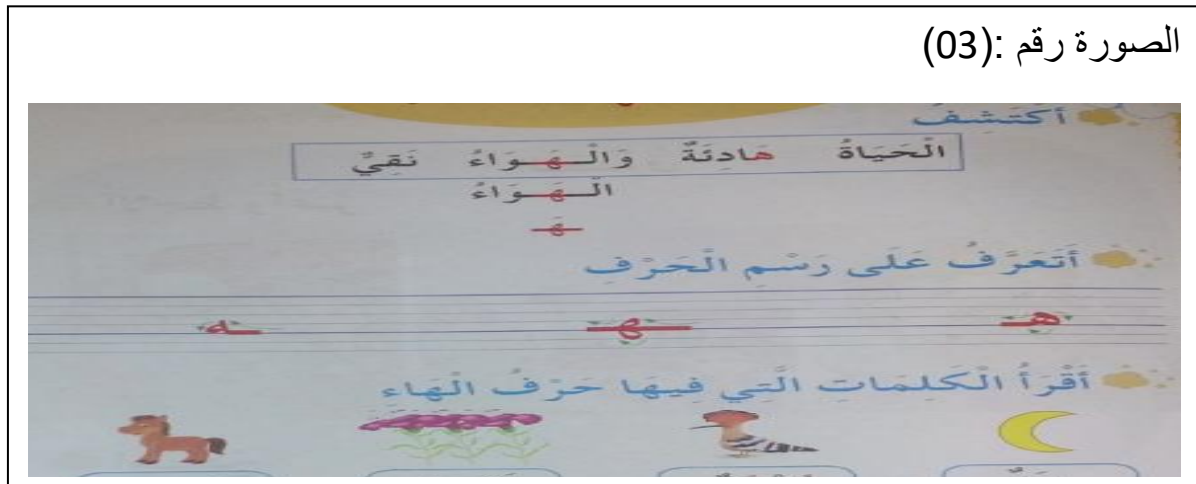 الصورة رقم :(03)
أَكْتَشِفُ
الْحَيَاةُ هَادِئَةٌ وَالْـهَـوَاءُ نَقِيٌّ
الْـهَـوَاءُ
ـهَـ
أَتَعَرَّفُ عَلَى رَسْمِ الْحَرْفِ
هـ ـهـ ـه
أَقْرَأُ الْكَلِمَاتِ الَّتِي فِيهَا حَرْفُ الْهَاءِ